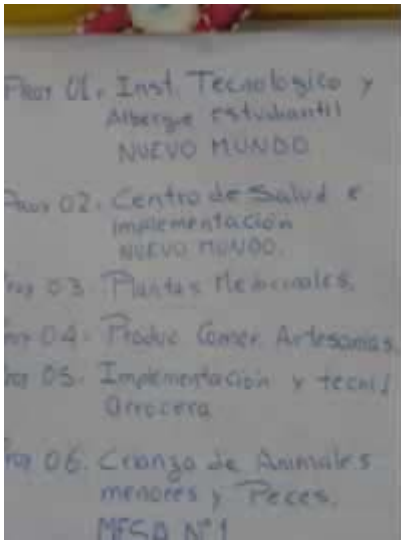 Proy 01. Inst. Tecnologico y
Albergue estudiantil
NUEVO MUNDO
Proy 02. Centro de Salud e
implementación
NUEVO MUNDO.
Proy 03 Plantas Medicinales.
Proy 04. Produc Comer. Artesanias.
Proy 05. Implementación y tecni
arrocera
Proy 06. Crianza de Animales
menores y Peces.
MESA N°1